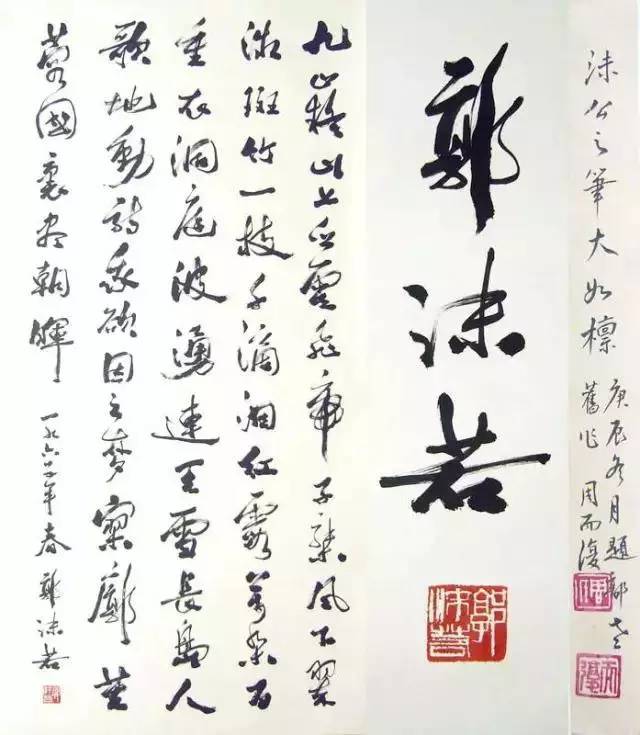 沫公之筆大如檩
庚辰冬月題郭老
舊作 周而復
周
而復
郭沫若
郭沫若
九嶷山上白雲飛帝子乘風下翠
微斑竹一枝千滴泪紅霞萬朵百
重衣洞庭波湧連天雪長島人
歌地動詩我欲因之夢寥廓芙
蓉國裏盡朝暉 一九六年春 郭沫若